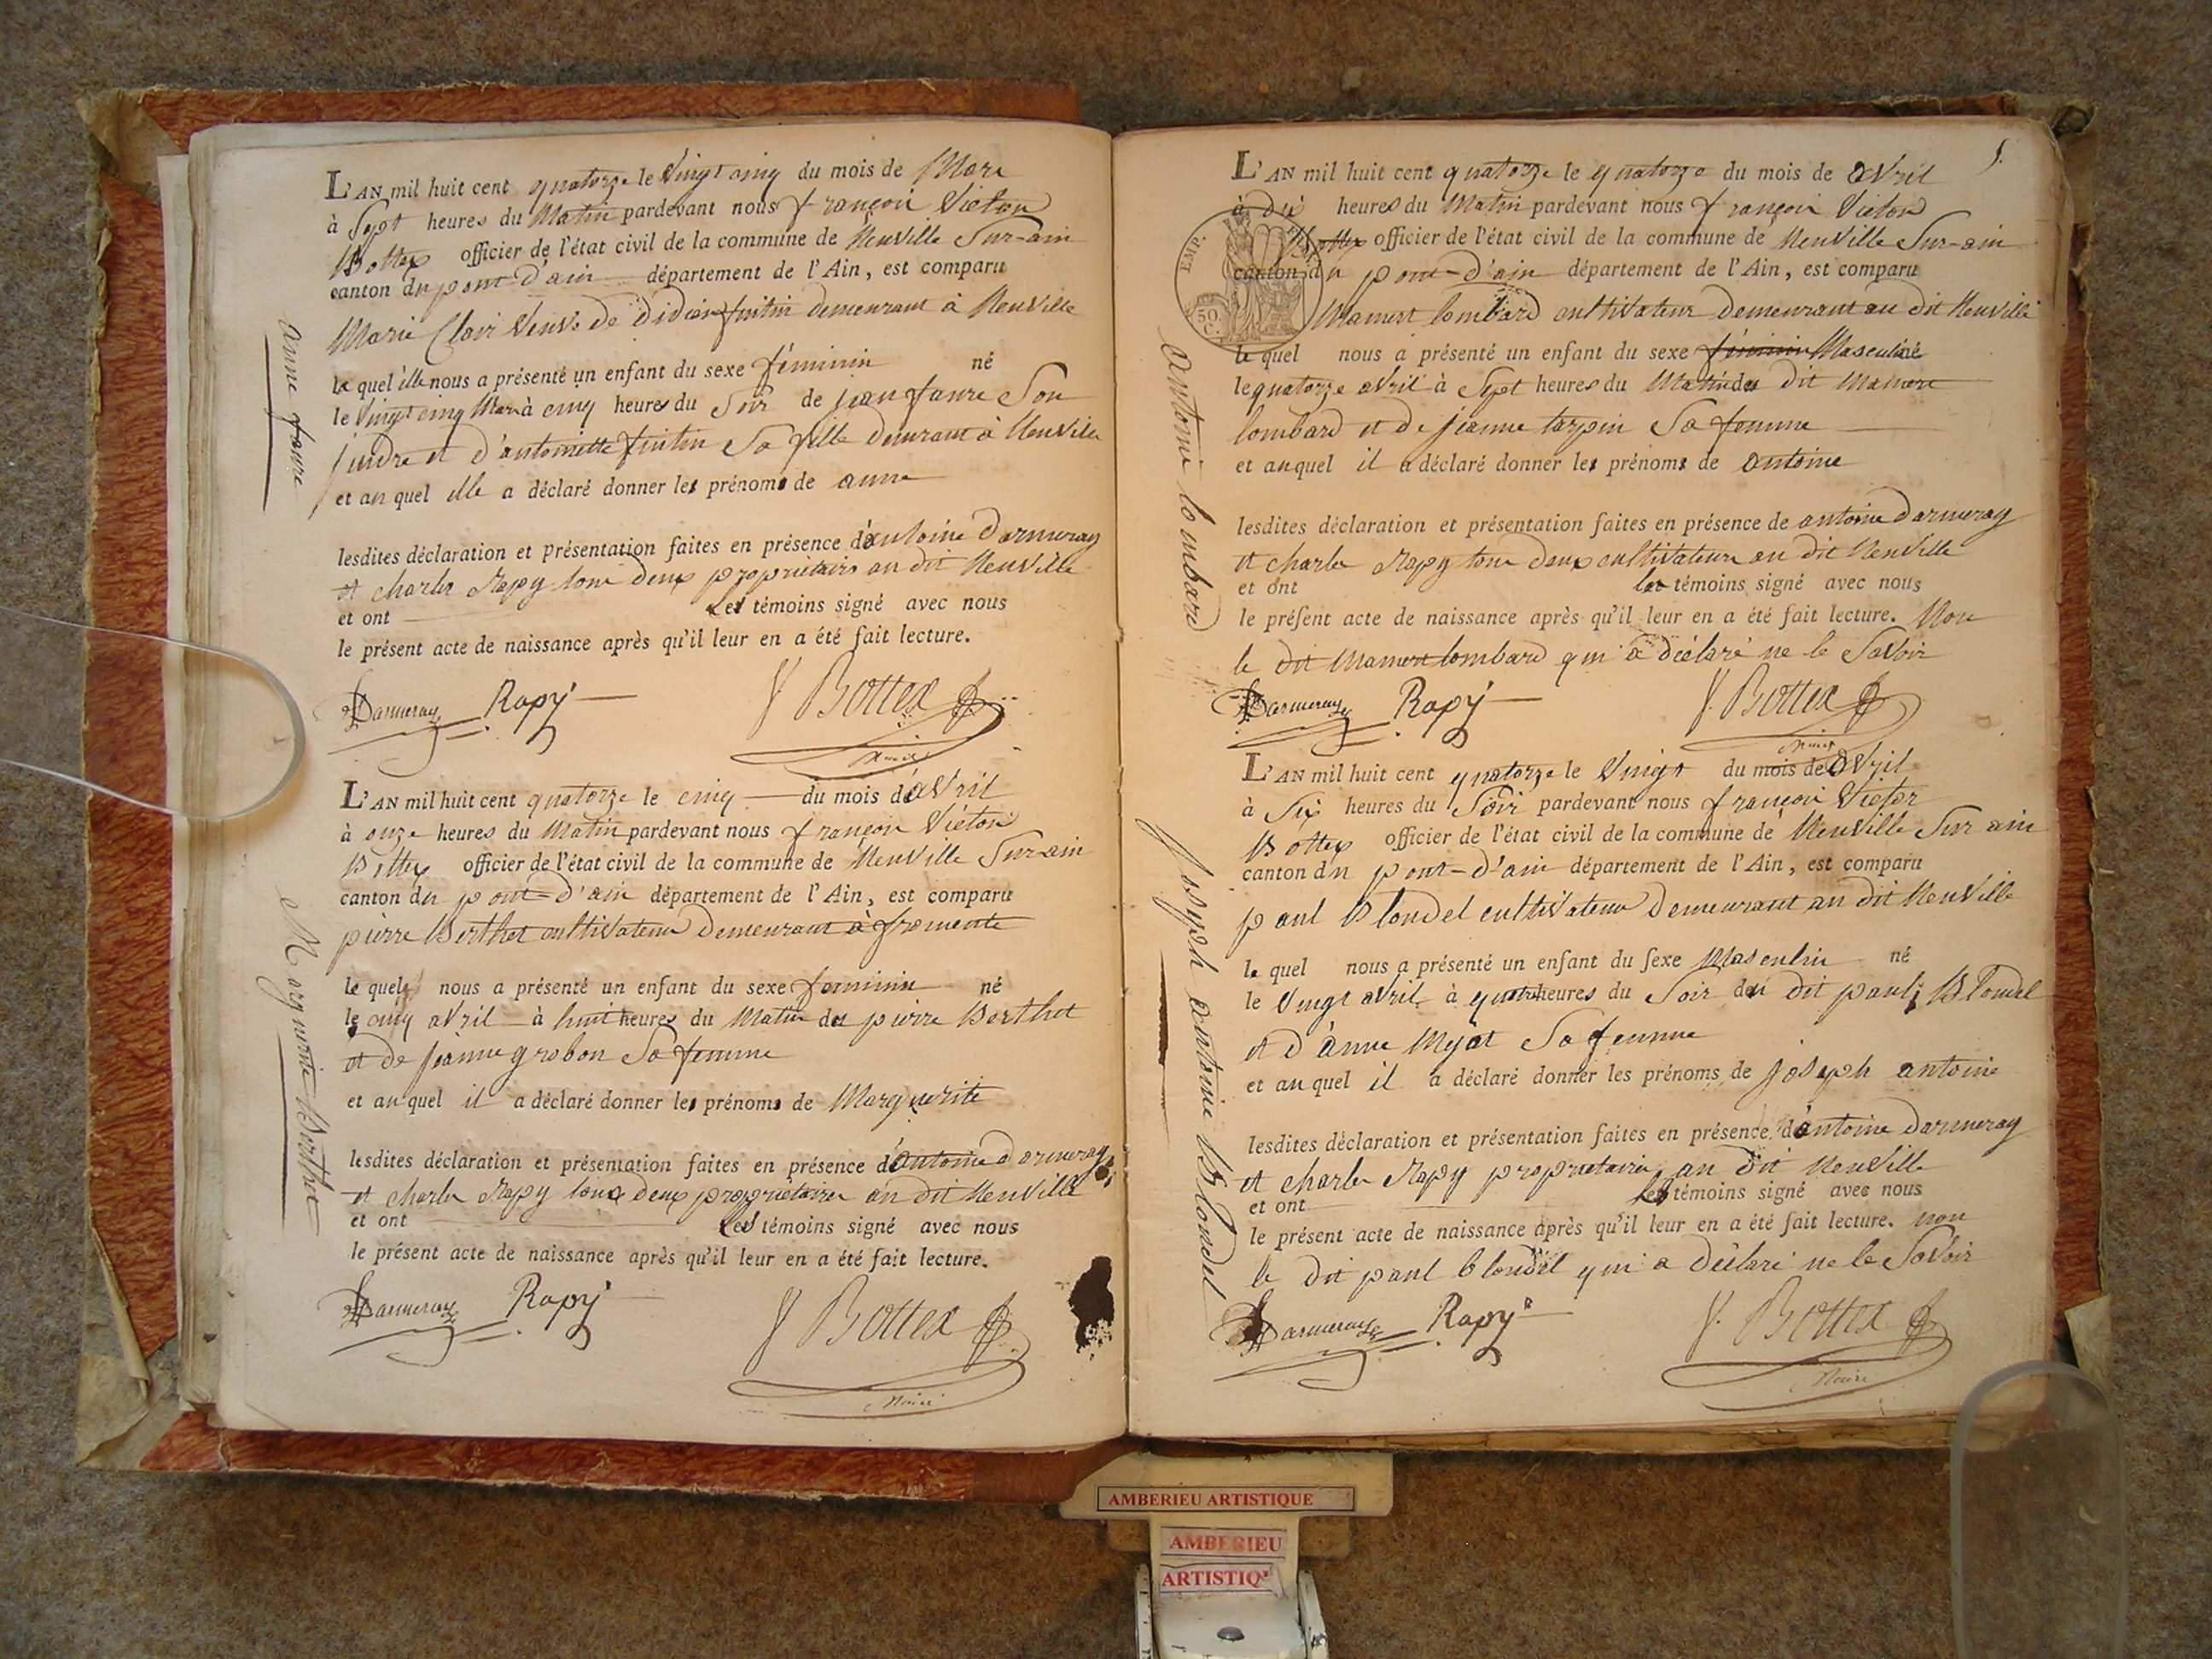 L'AN mil huit cent quatorze le Vingt cinq du mois de Mars
à Sept heures du Matin pardevant nous françois Victor
Bottex officier de l'état civil de la commune de Neuville Sur-ain
canton du pont-d'ain département de l'Ain, est comparu
Marie Clair Veuve de didier fintin demeurant à Neuville
le quel elle nous a présenté un enfant du sexe féminin né
le Vingt cinq Mars à cinq heures du Soir de jean faure Son
jendre et d'antoinette fintin Sa fille demeurant à Neuville
et au quel elle a déclaré donner les prénoms de anne
anne faure
lesdites déclaration et présentation faites en présence d'antoine Darmeray
et charles Rapy tous deux propriétaires au dit Neuville
et ont Les témoins signé avec nous
le présent acte de naissance après qu'il leur en a été fait lecture.
Darmeray Rapy V Bottex
Maire
L'AN mil huit cent quatorze le cinq du mois d'avril
à onze heures du Matin pardevant nous françois Victor
Bottex officier de l'état civil de la commune de Neuville Sur-ain
canton du pont-d'ain département de l'Ain, est comparu
pierre Berthet cultivateur demeurant à fromente
le quel nous a présenté un enfant du sexe feminin né
le cinq avril à huit heures du Matin du pierre Berthet
et de jeanne grobon Sa femme
et au quel il a déclaré donner les prénoms de Marguerite
Marguerite Berthet
lesdites déclaration et présentation faites en présence d'antoine darmeray
et charles Rapy tous deux propriétaires au dit Neuville
et ont Les témoins signé avec nous
le présent acte de naissance après qu'il leur en a été fait lecture.
Darmeray Rapy V Bottex
Maire
5.
L'AN mil huit cent quatorze le quatorze du mois de avril
à dix heures du Matin pardevant nous françois Victor
Bottex officier de l'état civil de la commune de Neuville Sur-ain
canton du pont-d'ain département de l'Ain, est comparu
EMP.
50
C.
Mamert lombard cultivateur demeurant au dit Neuville
le quel nous a présenté un enfant du sexe féminin Masculin né
le quatorze avril à Sept heures du Matin du dit Mamert
lombard et de jeanne tarpin Sa femme
et au quel il a déclaré donner les prénoms de antoine
antoine lombard
lesdites déclaration et présentation faites en présence de antoine darmeray
et charles Rapy tous deux cultivateurs au dit Neuville
et ont les témoins signé avec nous
le présent acte de naissance après qu'il leur en a été fait lecture. Non
le dit Mamert lombard qui a déclaré ne le Savoir
Darmeray Rapy V. Bottex
Maire
L'AN mil huit cent quatorze le Vingt du mois de avril
à Six heures du Soir pardevant nous françois Victor
Bottex officier de l'état civil de la commune de Neuville Sur ain
canton du pont-d'ain département de l'Ain, est comparu
paul Blondel cultivateur demeurant au dit Neuville
le quel nous a présenté un enfant du sexe Masculin né
le Vingt avril à quatre heures du Soir du dit paul Blondel
et d'anne Mejat Sa femme
et au quel il a déclaré donner les prénoms de joseph antoine
joseph antoine Blondel
lesdites déclaration et présentation faites en présence d'antoine darmeray
et charles Rapy propriétaires au dit Neuville
et ont Les témoins signé avec nous
le présent acte de naissance après qu'il leur en a été fait lecture. non
le dit paul blondel qui a déclaré ne le Savoir
Darmeray Rapy V. Bottex
Maire
AMBERIEU ARTISTIQUE
AMBERIEU
ARTISTIQ